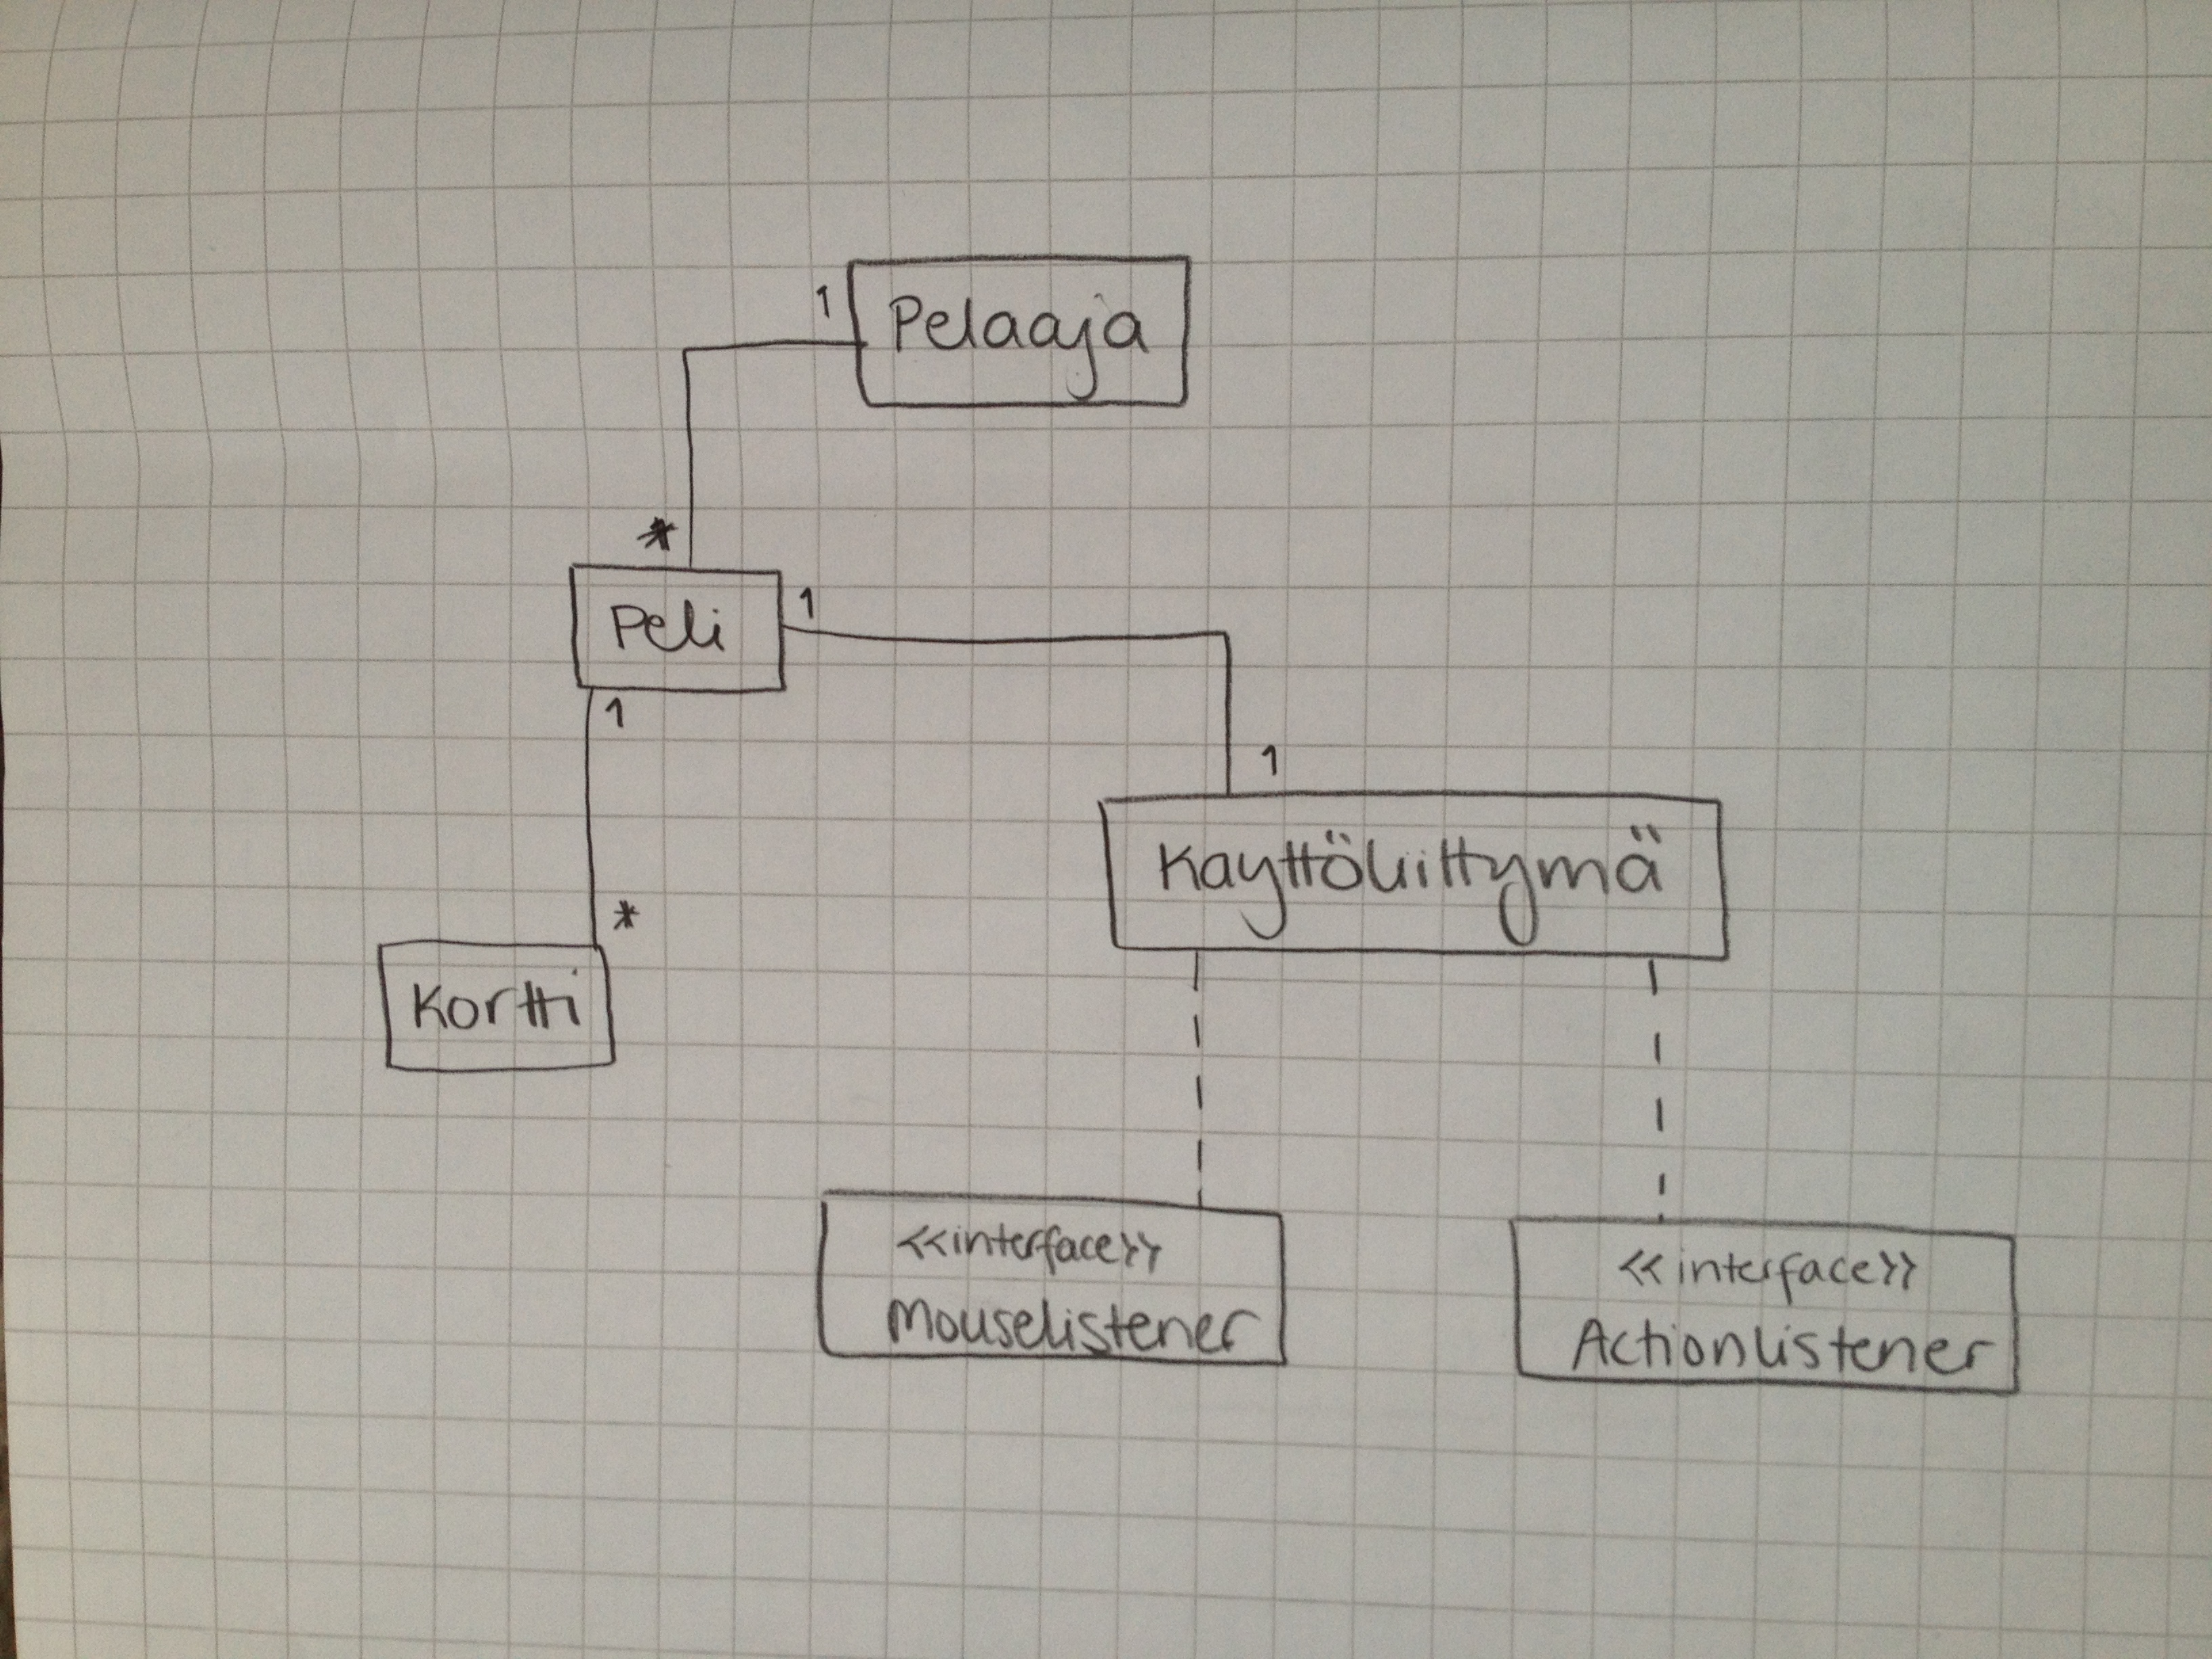 1
Pelaaja
*
Peli
1
1
1
Kayttöliittymä
*
Kortti
<<interface>>
Mouselistener
<<interface>>
Actionlistener